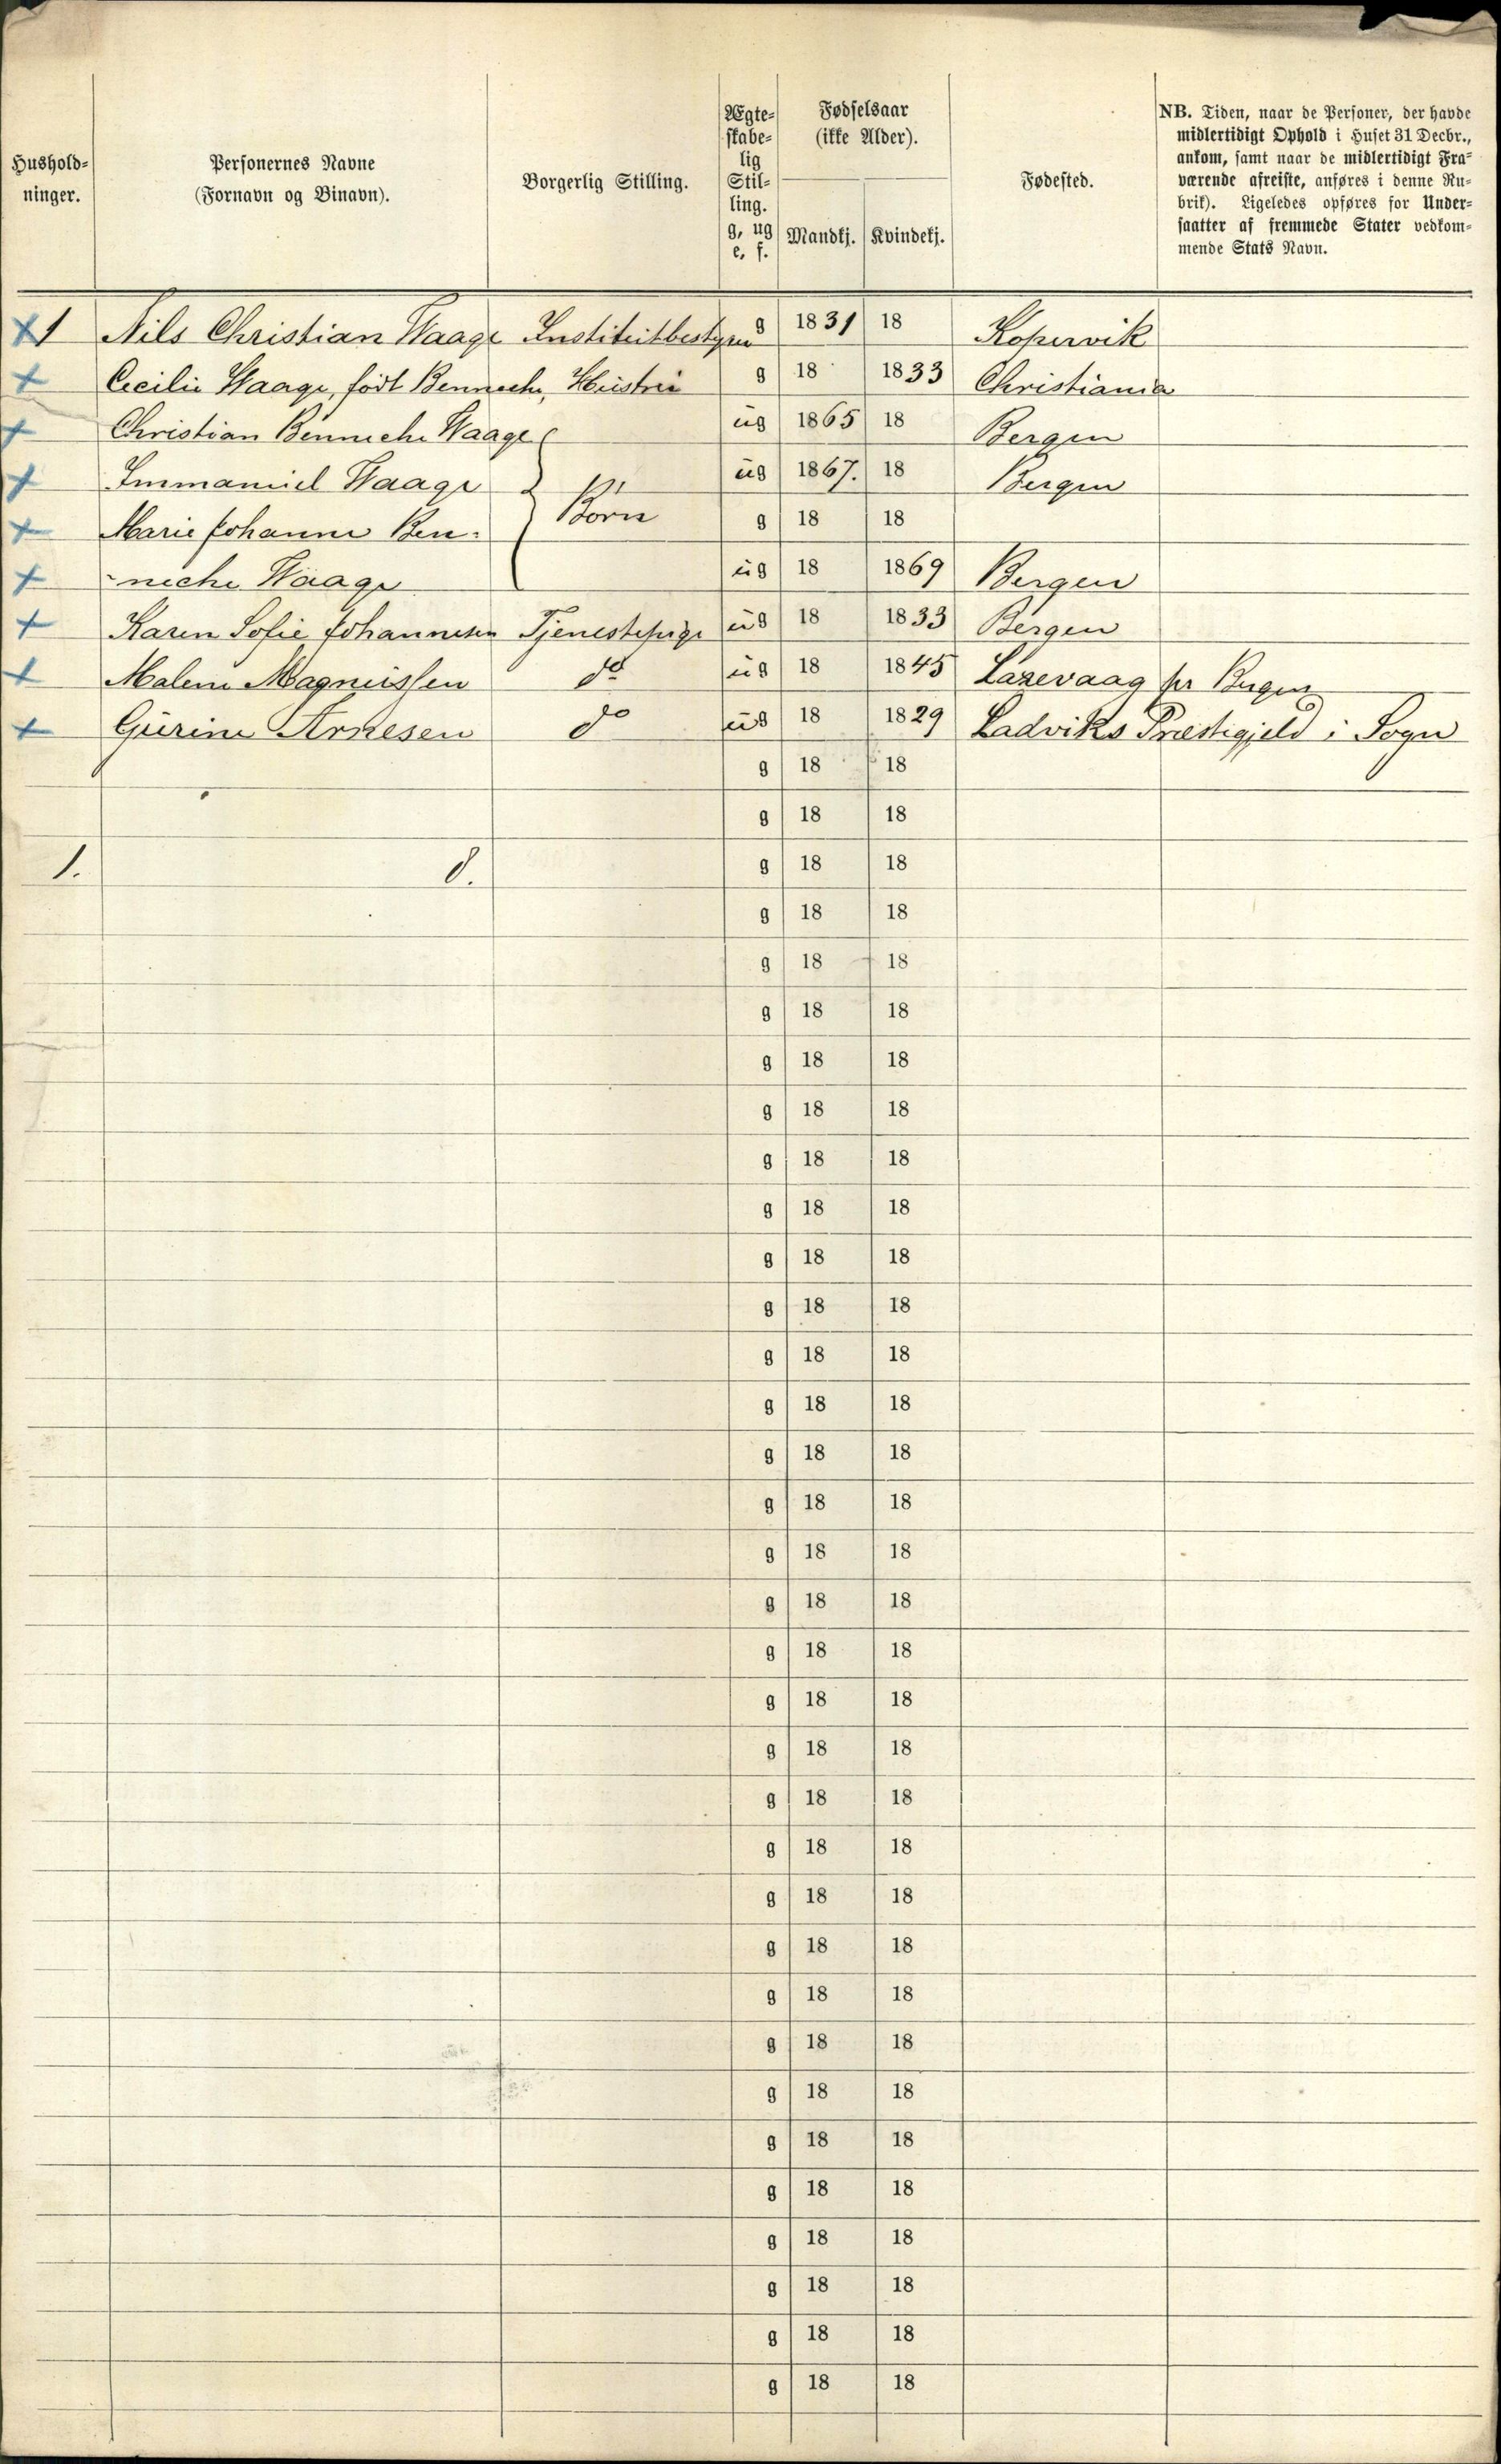 Hushold-
ninger.
Personernes Navne
(Fornavn og Binavn).
Borgerlig Stilling.
Ægte-
skabe-
lig
Stil-
ling.
g, ug
e, f.
Fødselsaar
(ikke Alder).
Mandkj.
Kvindekj.
Fødested.
NB. Tiden, naar de Personer, der havde
midlertidigt Ophold i Huset 31 Decbr.,
ankom, samt naar de midlertidigt Fra-
værende afreiste, anføres i denne Ru-
brik). Ligeledes opføres for Under-
saatter af fremmede Stater vedkom-
mende Stats Navn.
1 Nils Christian Waage Institutbestyrer g 1831 18 Kopervik
Cecilie Waage, født Benneche, Hustru g 18 1833 Christiania
Christian Benneche Waage ug 1865 18 Bergen
Immanuel Waage ug 1867. 18 Bergen
Marie Johanne Ben- Børn g 18 18
-neche Waage ug 18 1869 Bergen
Karen Sofie Johannesen Tjenestepige ug 18 1833 Bergen
Malene Magnussen do ug 18 1845 Laxevaag pr Bergen
Gurine Arnesen do ug 18 1829 Ladviks Præstegjeld i Sogn
g 18 18
g 18 18
1. 8. g 18 18
g 18 18
g 18 18
g 18 18
g 18 18
g 18 18
g 18 18
g 18 18
g 18 18
g 18 18
g 18 18
g 18 18
g 18 18
g 18 18
g 18 18
g 18 18
g 18 18
g 18 18
g 18 18
g 18 18
g 18 18
g 18 18
g 18 18
g 18 18
g 18 18
g 18 18
g 18 18
g 18 18
g 18 18
g 18 18
g 18 18
g 18 18